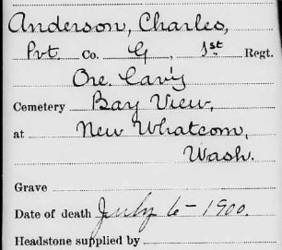 Anderson, Charles,
Pvt. Co. G, 1st Regt.
Ore. Cav'y
Cemetery Bay View,
at New Whatcom,
Wash.
Grave
Date of death July 6 - 1900.
Headstone supplied by